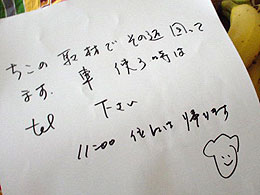 ちこの 取材で その辺 回って
ます. 車 使う時は
tel 下さい
11:00 位には 帰ります